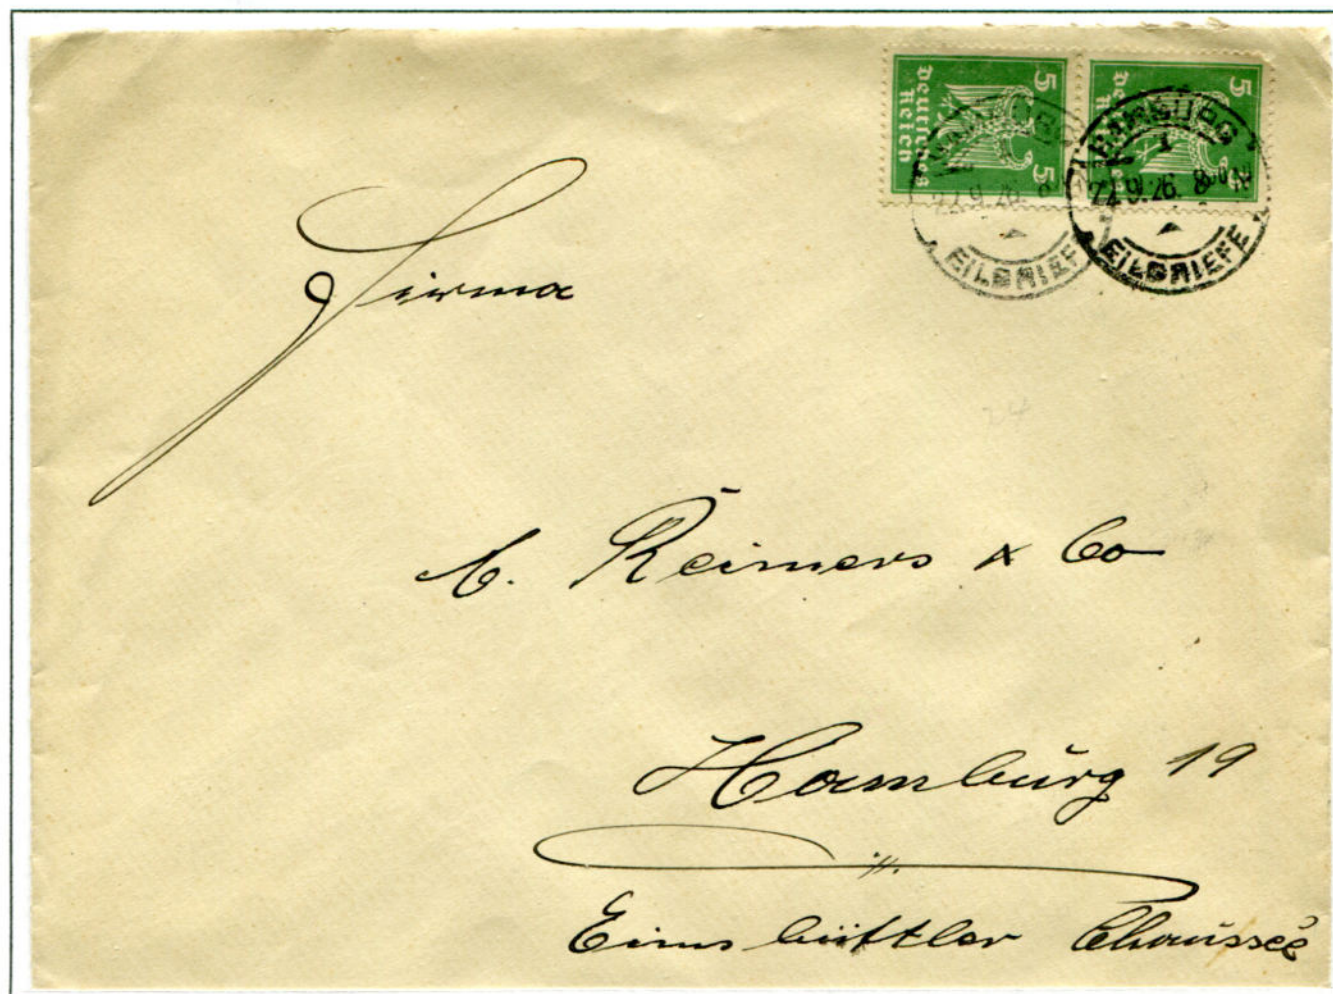 5 Deutsches Reich 5
5 Deutsches Reich 5
HAMBURG 1
22.9.26. 8
EILBRIEFE
HAMBURG
1
22.9.26. 8-9 N
EILBRIEFE
Firma
C. Reimers & Co
Hamburg 19
Eimsbüttler Chaussée